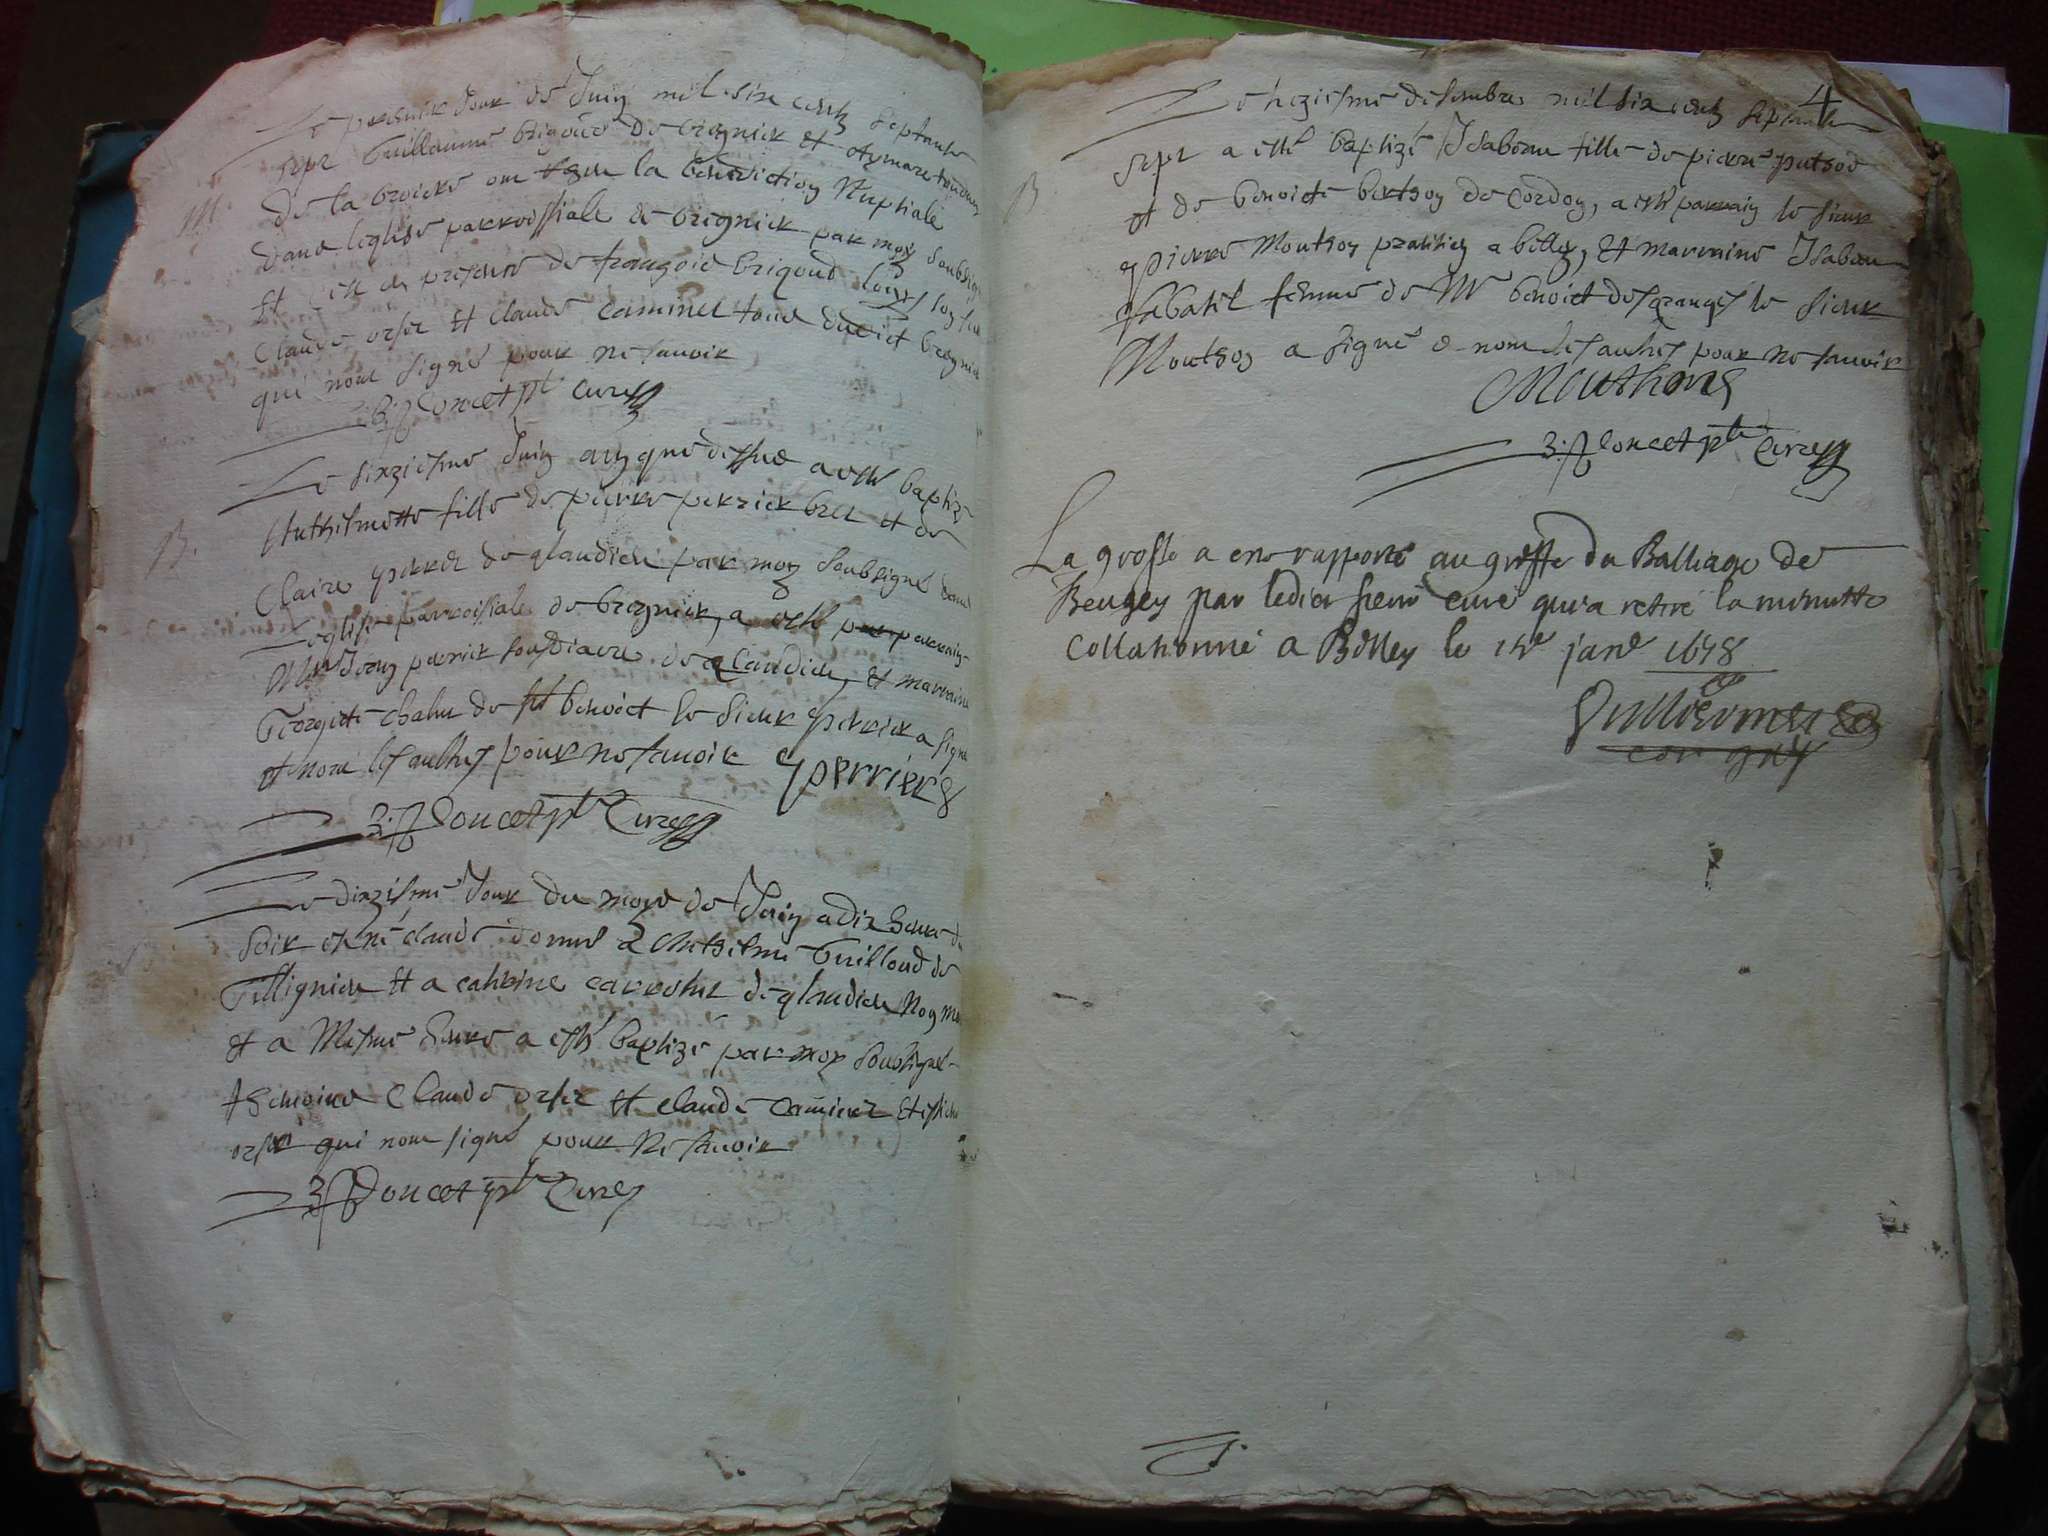 M.
Le premier Jour de Juin mil six centz septante
sept Guillaume brigoud de bregnier et Aymare
de la broiere ont la benediction Nuptiale
dans leglise parroissiale de bregnier par moy soubsigne
Et en presence de françois brigoud
Claude orset Et Claude caminet tous dudict bregnier
qui nont signé pour ne scavoir
Doncet pbt Curé
B.
Le sixziesme Juin an que dessus a esté baptizé
Anthelmette fille de pierre perrier bret et de
Claire perret de glandieu par moy soubsigné dans
Leglise parroissiale de bregnier, a esté parrain
Mre Jean perrier sousdiacre de glandieu, et marraine
Georgette chalus de st benoict le sieur perrier a signé
et non les aultres pour ne scavoir perrier
Doncet pbt Curé
Le dixziesme Jour du mois de Juin a dix heure du
soir est né claude donné a Anthelme Guilloud de
et a catherine de glandieu
et a Mesme heure a esté baptizé par moy soubsigné
Claude orset et claude caminet
orset qui nont signé pour ne scavoir
Doncet pbt Curé
4
B
Le treziesme desembre mil six centz septante
sept a esté baptizé Isabeau fille de pierre putsod
et de benoicte bertson de Cordon, a esté parrain le sieur
pierre Monthon praticien a belley, et marraine Isabeau
sabatil femme de Mr benoict desgranges le sieur
Monthon a signé & non les aultres pour ne scavoir
Mouthon
Doncet pbt Curé
La grosse a este rapporté au greffe du Balliage de
Beugey par ledict sieur curé qui a retiré la minutte
Collationné a Belley le janv 1678